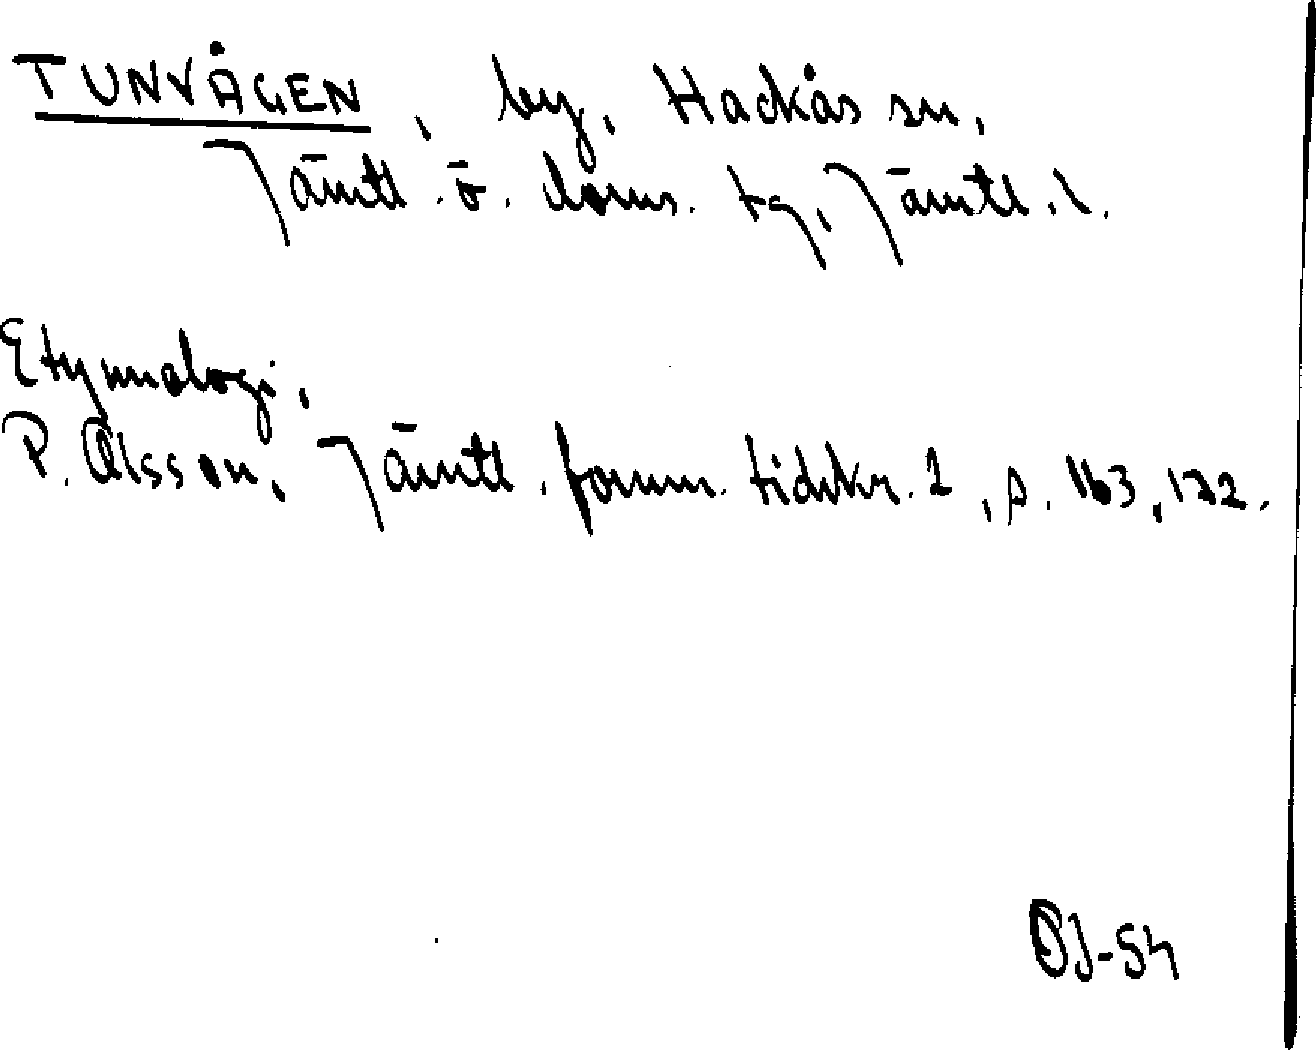 TUNVÅGEN, by, Hackås sn,
Jämtl. ö. doms. tg, Jämtl. l.
Etymologi,
P. Olsson, Jämtl. fornm. tidskr. 1, s. 163, 172.
OJ-54